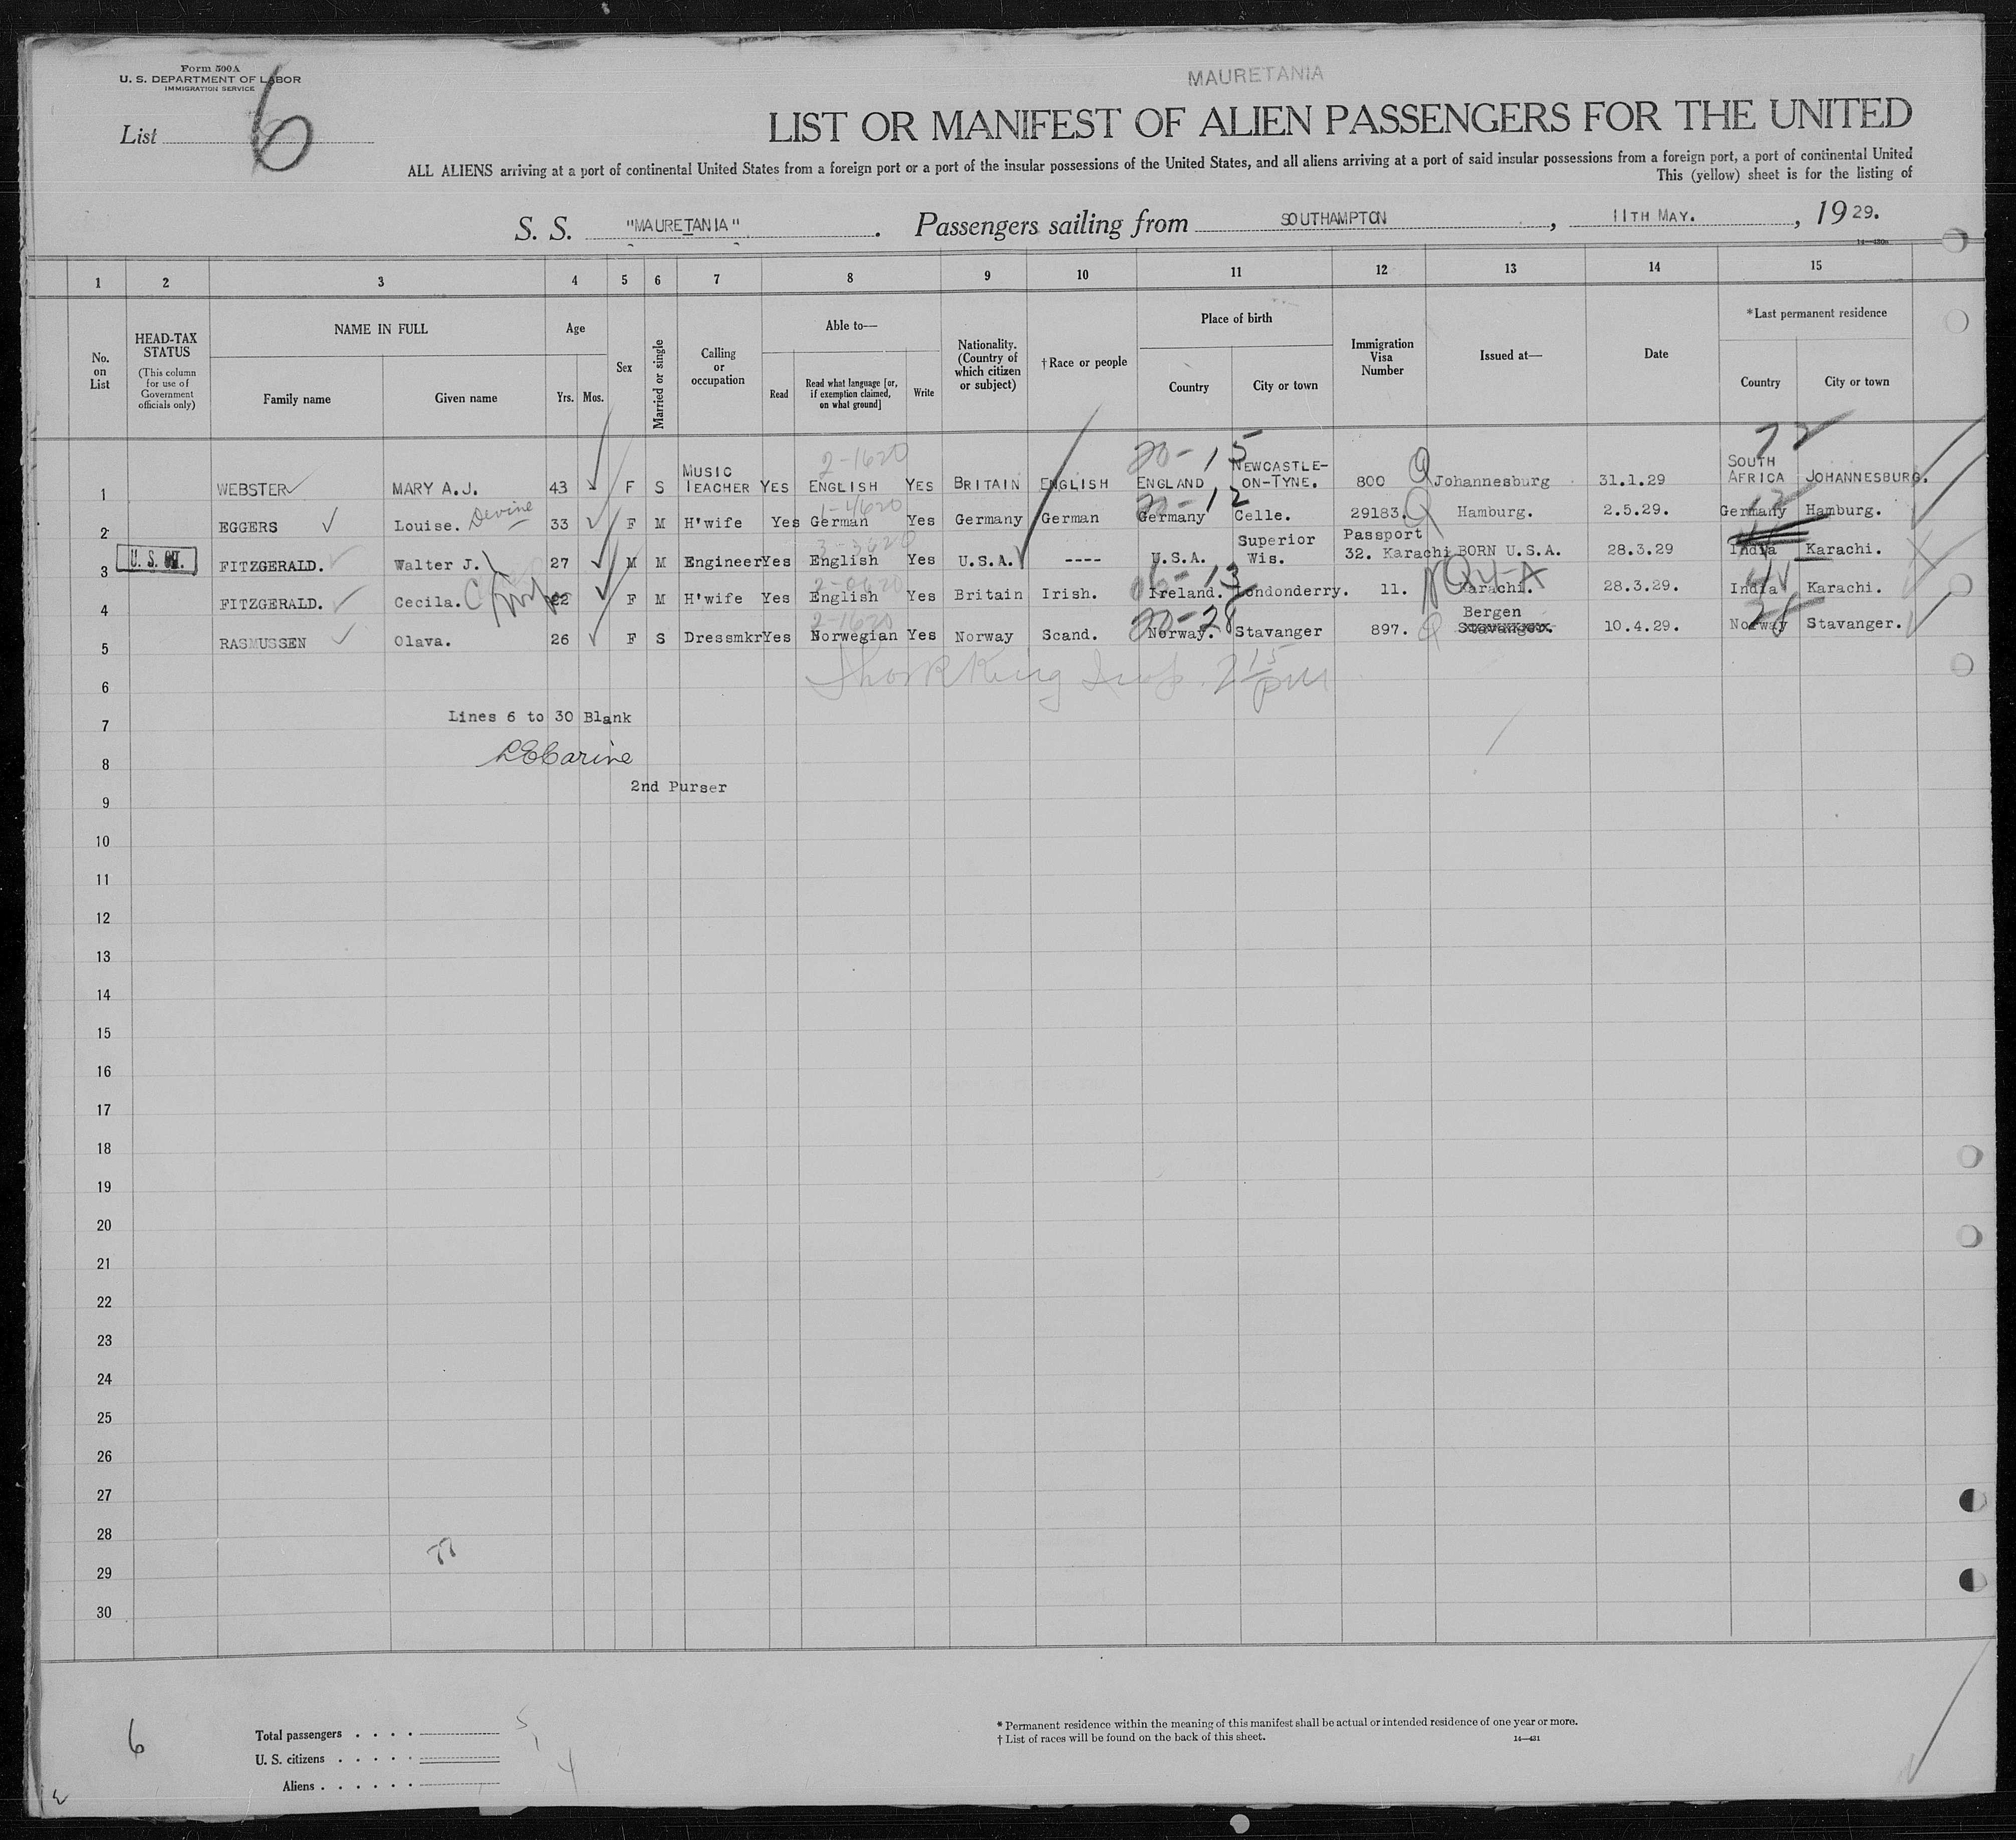 Form 500A
U. S. DEPARTMENT OF LABOR
IMMIGRATION SERVICE
MAURETANIA
List 6
LIST OR MANIFEST OF ALIEN PASSENGERS FOR THE UNITED
ALL ALIENS arriving at a port of continental United States from a foreign port or a port of the insular possessions of the United States, and all aliens arriving at a port of said insular possessions from a foreign port, a port of continental United
This (yellow) sheet is for the listing of
S. S. "MAURETANIA". Passengers sailing from SOUTHAMPTON, 11TH MAY., 1929.
14—430a
1 2 3 4 5 6 7 8 9 10 11 12 13 14 15
No. on List
HEAD-TAX STATUS
(This column for use of Government officials only)
NAME IN FULL
Family name
Given name
Age
Yrs. Mos.
Sex
Married or single
Calling or occupation
Able to—
Read
Read what language [or, if exemption claimed, on what ground]
Write
Nationality. (Country of which citizen or subject)
†Race or people
Place of birth
Country
City or town
Immigration Visa Number
Issued at—
Date
*Last permanent residence
Country
City or town
72
2-1620
20-15
1 WEBSTER MARY A.J. 43 F S MUSIC TEACHER YES ENGLISH YES BRITAIN ENGLISH ENGLAND NEWCASTLE-ON-TYNE. 800 Johannesburg 31.1.29 SOUTH AFRICA JOHANNESBURG.
1-4620
20-12
2 EGGERS Louise. Devine 33 F M H'wife Yes German Yes Germany German Germany Celle. 29183. Hamburg. 2.5.29. Germany Hamburg.
3 U. S. CIT. FITZGERALD. Walter J. 27 M M Engineer Yes English Yes U.S.A. ---- U.S.A. Superior Wis. Passport 32. Karachi BORN U.S.A. 28.3.29 India Karachi.
NQ 4-A
4 FITZGERALD. Cecila. 22 F M H'wife Yes English Yes Britain Irish. Ireland. Londonderry. 11. Karachi. 28.3.29. India Karachi.
2-1620
20-28
5 RASMUSSEN Olava. 26 F S Dressmkr Yes Norwegian Yes Norway Scand. Norway. Stavanger 897. Bergen Stavanger. 10.4.29. Norway Stavanger.
6
7 Lines 6 to 30 Blank
8
2nd Purser
9
10
11
12
13
14
15
16
17
18
19
20
21
22
23
24
25
26
27
28
29
30
6
Total passengers . . . . 5
U. S. citizens . . . . . 1
Aliens . . . . . . 4
* Permanent residence within the meaning of this manifest shall be actual or intended residence of one year or more.
† List of races will be found on the back of this sheet.
14—431